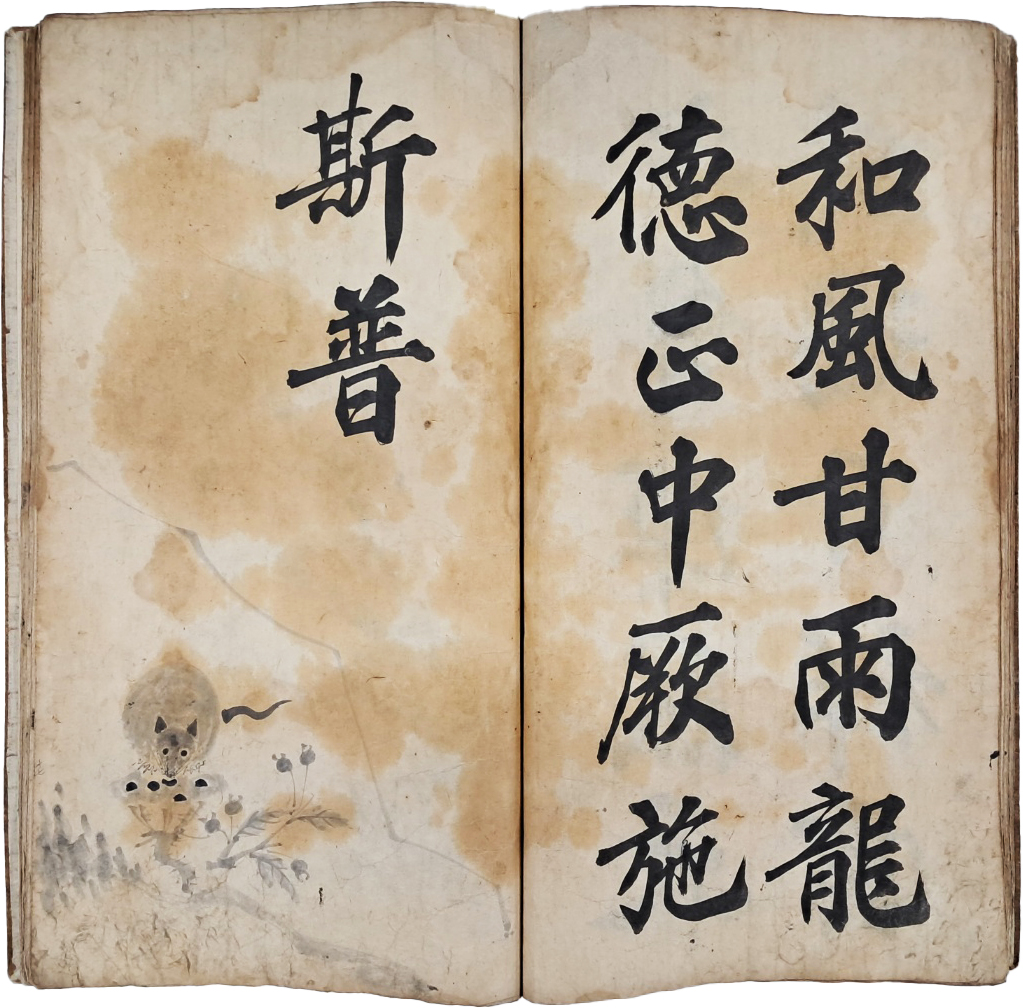 和風甘雨龍
德正中厥施
斯普